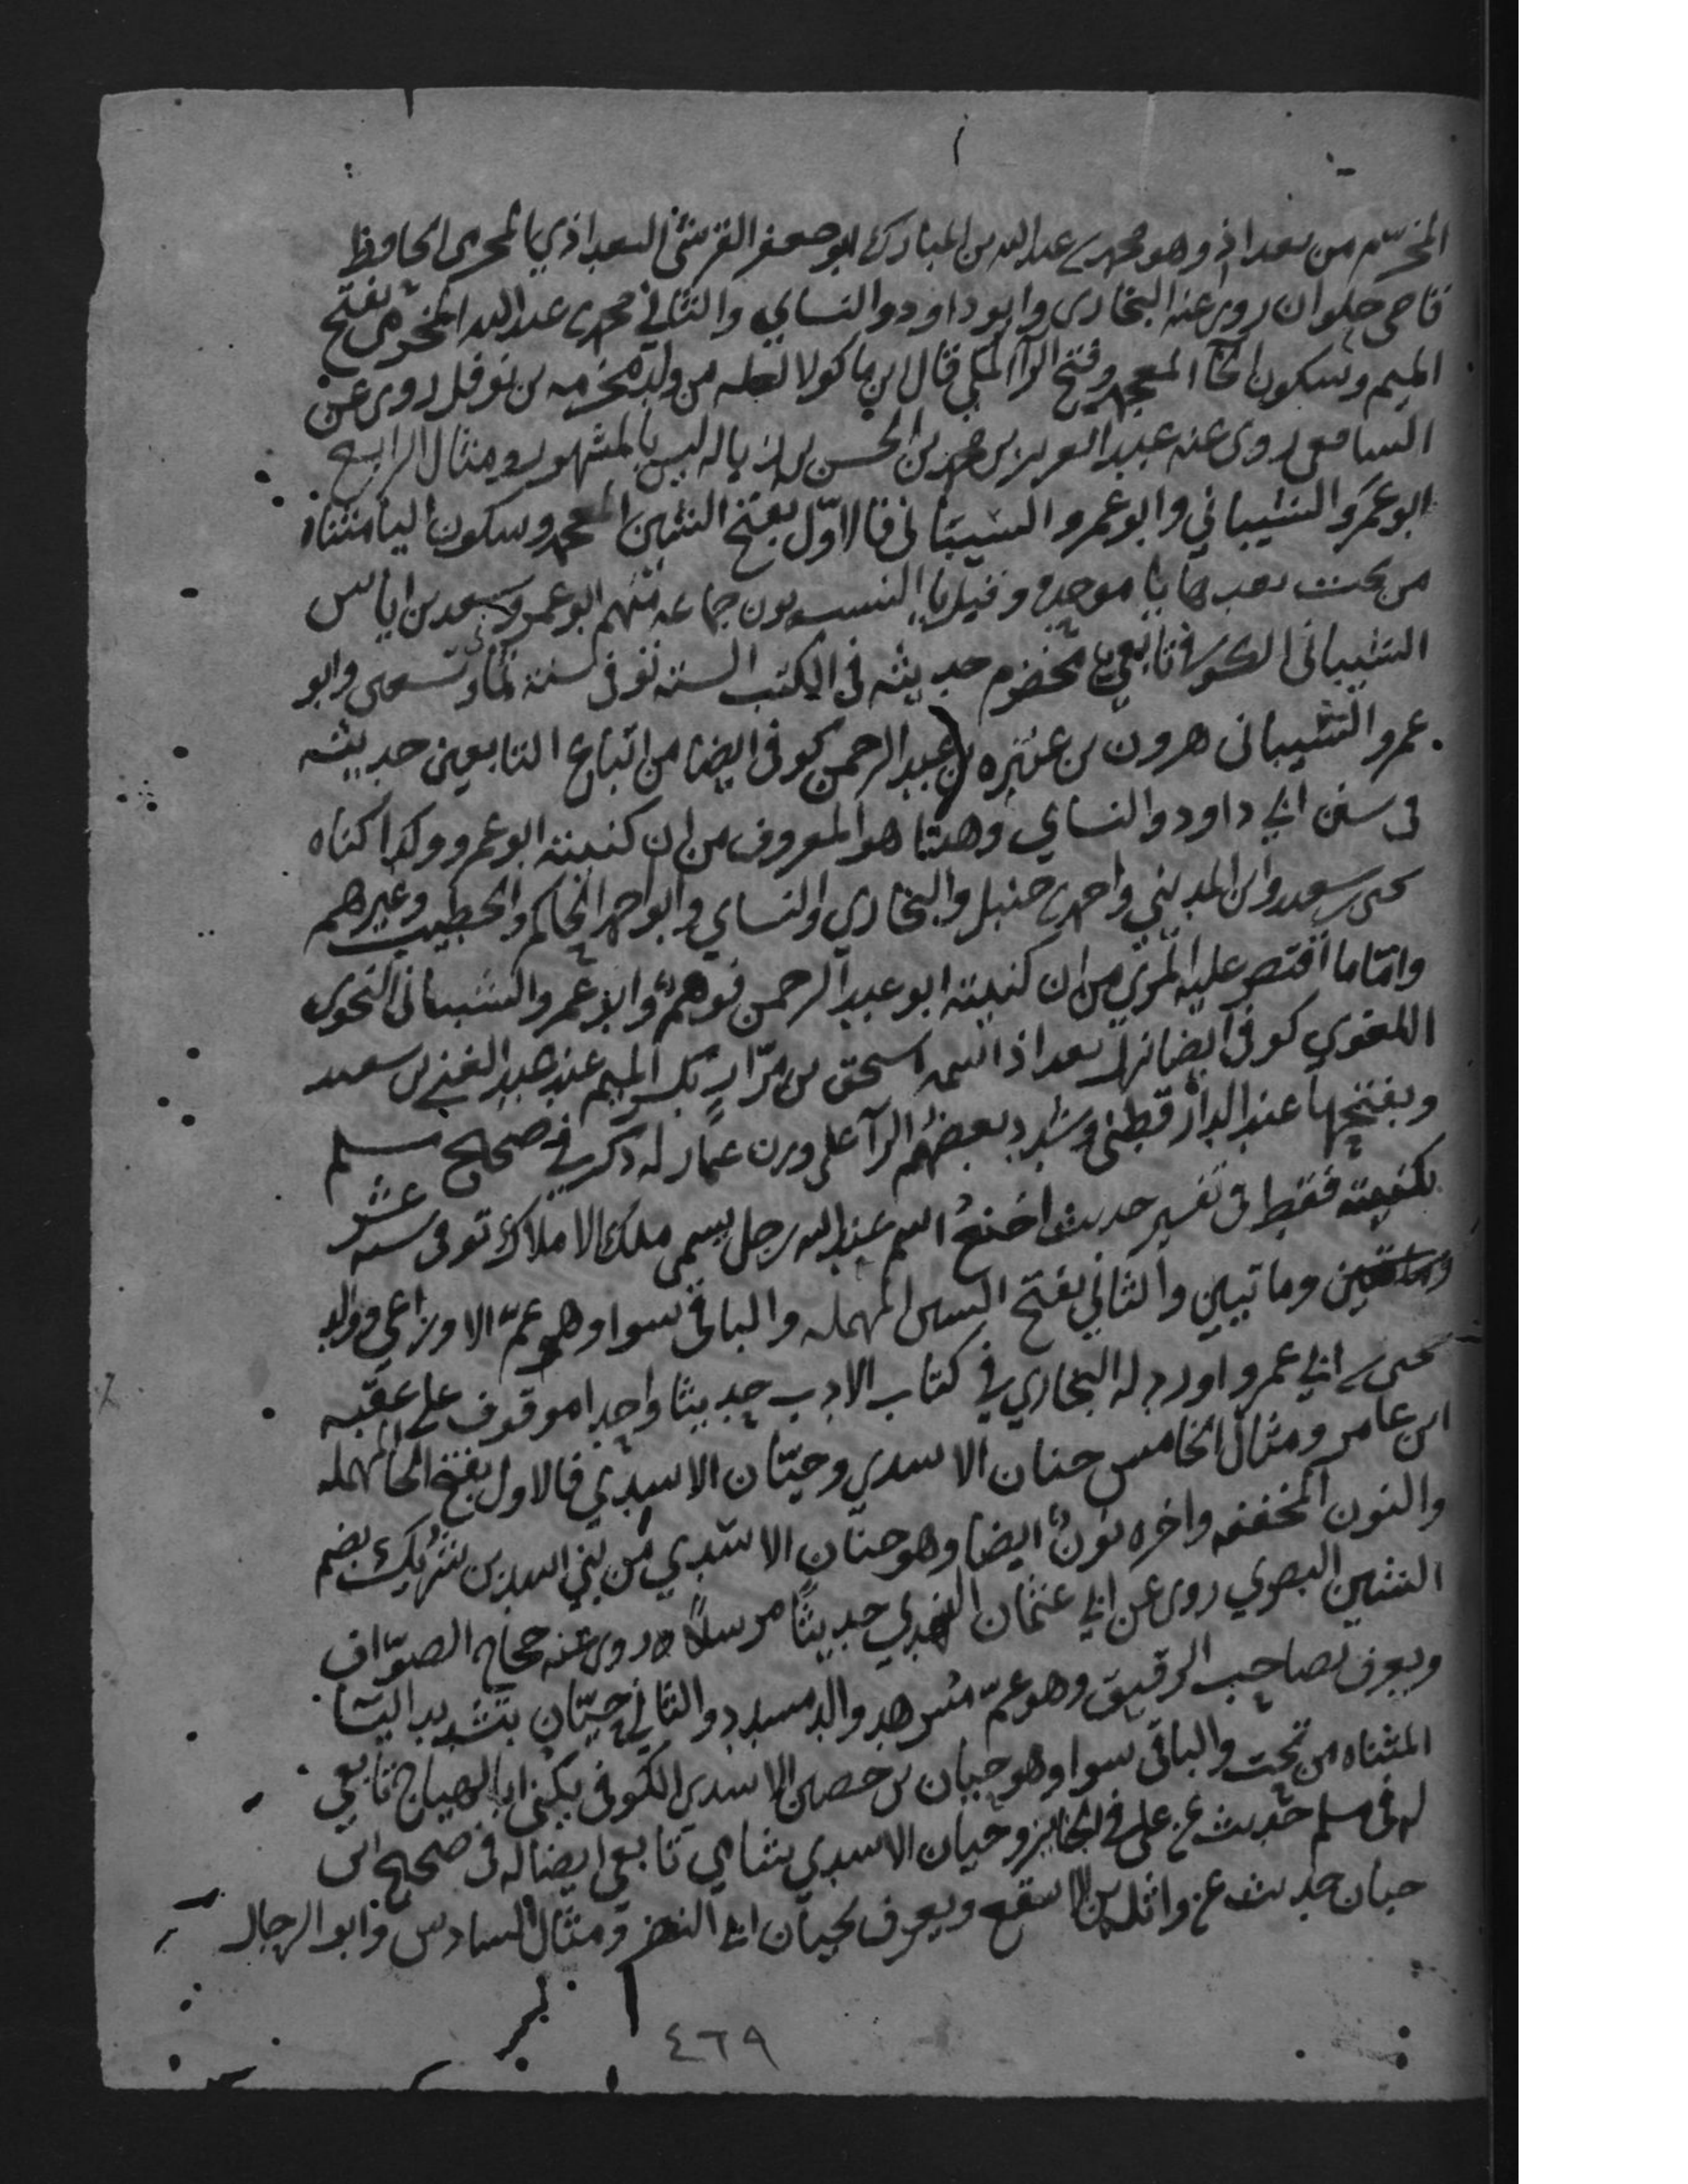 المخرّم من بغداذ وهو محمد بن عبد الله بن المبارك ابو جعفر القرشي البغداذي المخرمي الحافظ
قاضي حلوان روى عنه البخاري وابو داود والنساي والثاني محمد بن عبد الله المخرمي بفتح
الميم وسكون الخا المعجمه وفتح الرا المكي قال ابن ماكولا لعله من ولد مخرمه بن نوفل روى عن
الشافعي روى عنه عبد العزيز بن محمد بن الحسن بن زباله ليس بالمشهور ومثال الرابع
ابو عمرو الشيباني وابو عمرو السيباني فالاول بفتح الشين المعجمه وسكون اليا مثناه
من تحت بعدها با موحده وقبل يا النسب نون جماعه منهم ابو عمرو سعد بن اياس
الشيباني الكوفي تابعي مخضرم حديثه في الكتب السته توفى سنة ثمان وتسعين وابو
عمرو الشيباني هرون بن عنتره بن عبد الرحمن كوفي ايضا من اتباع التابعين حديثه
في سنن ابي داود والنساي وهذا هو المعروف من ان كنيته ابو عمرو وكذا كناه
يحيى بن سعيد وابن المديني واحمد بن حنبل والبخاري والنساي وابو احمد الحاكم والخطيب وغيرهم
واما ما اقتصر عليه المزي من ان كنيته ابو عبد الرحمن فوهم وابو عمرو الشيباني النحوي
اللغوي كوفي ايضا نزل بغداذ اسمه اسحق بن مرار بكسر الميم عند عبد الغني بن سعيد
وبفتحها عند الدارقطني وشدد بعضهم الرا على وزن عمار له ذكر في صحيح مسلم
بكنيته فقط في تفسير حديث اخنع اسم عند الله رجل يسمى ملك الاملاك توفى سنه عشر
وماتيين والثاني بفتح السين المهمله والباقي سوا وهو عمّ الاوزاعي ووالد
يحيى بن ابي عمرو اورد له البخاري في كتاب الادب حديثا واحدا موقوف على عقبه
ابن عامر ومثال الخامس حنان الاسدي وحيّان الاسدي فالاول بفتح الحا المهمله
والنون المخففه واخره نون ايضا وهو حنان الاسدي من بني اسد بن شريك بضم
الشين البصري روى عن ابي عثمان النهدي حديثا مرسلا روى عنه حجاج الصوّاف
ويعرف بصاحب الرقيق وهو عمّ مسرهد والد مسدد والثاني حيّان بتشديد اليا
المثناه من تحت والباقي سوا وهو حيان بن حصين الاسدي الكوفي يكنى ابا الهياج تابعي
له في مسلم حديث عن علي في الجنايز وحيان الاسدي شامي تابعي ايضا له في صحيح ابن
حبان حديث عن واثله بن الاسقع ويعرف بحيان ابي النضر ومثال السادس وابو الرجال
٤٦٩